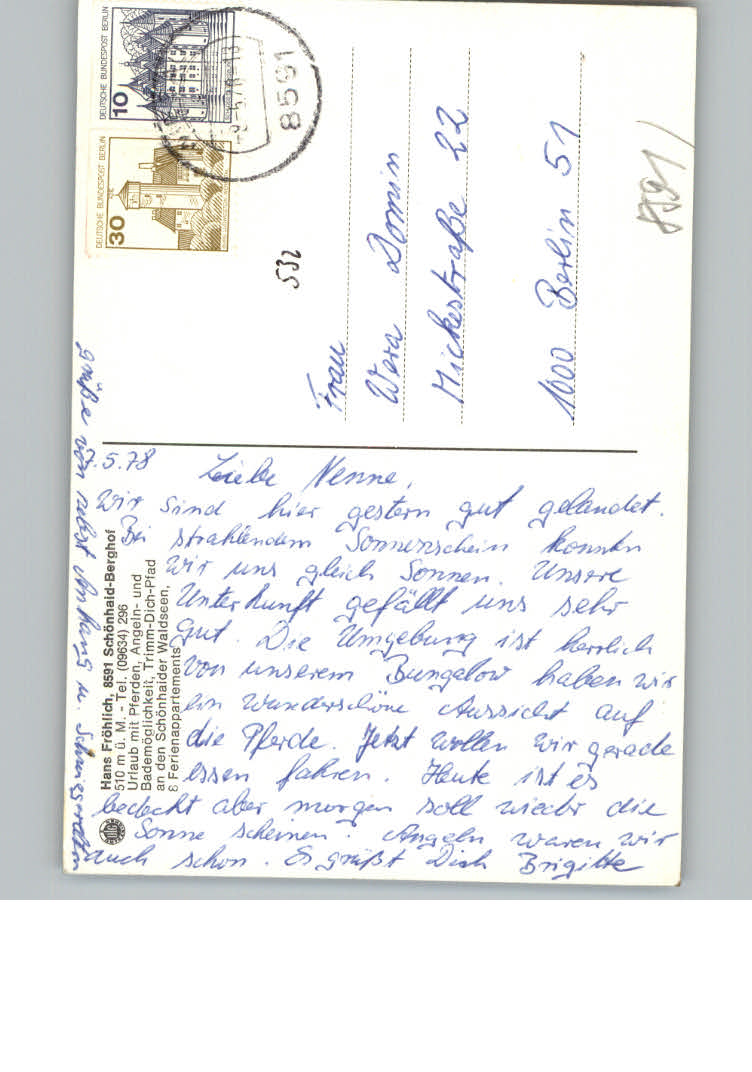 DEUTSCHE BUNDESPOST BERLIN
10
DEUTSCHE BUNDESPOST BERLIN
30
8591
532
Frau
Wera Domin
Mickestraße 22
1000 Berlin 51
8591
7.5.78
Liebe Nenne,
Wir sind hier gestern gut gelandet.
Bei strahlendem Sonnenschein konnten
wir uns gleich Sonnen. Unsere
Unterkunft gefällt uns sehr
gut. Die Umgebung ist herrlich
von unserem Bungalow haben wir
ein wunderschöne Aussicht auf
die Pferde. Jetzt wollen wir gerade
essen fahren. Heute ist es
bedeckt aber morgen soll wieder die
Sonne scheinen. Angeln waren wir
auch schon. Es grüßt Dich Brigitte
Grüße von nebst Anhang u.
Hans Fröhlich, 8591 Schönhaid-Berghof
510 m ü. M. - Tel. (09634) 296
Urlaub mit Pferden, Angeln- und
Bademöglichkeit, Trimm-Dich-Pfad
an den Schönhaider Waldseen,
8 Ferienappartements